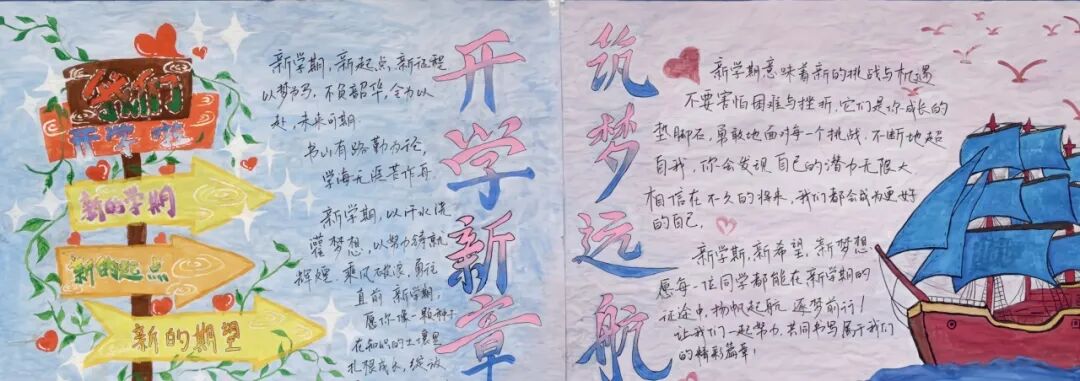 我们
开学啦
新的学期
新的起点
新的期望
新学期，新起点，新征程
以梦为马，不负韶华，全力以
赴，未来可期
书山有路勤为径，
学海无涯苦作舟
新学期，以汗水浇
灌梦想，以努力铸就
辉煌 乘风破浪，勇往
直前 新学期，
愿你像一颗种子
在知识的土壤里
扎根成长，绽放
开学新章
筑梦远航
新学期意味着新的挑战与机遇
不要害怕困难与挫折，它们是你成长的
垫脚石，勇敢地面对每一个挑战，不断地超
自我，你会发现自己的潜力无限大
相信在不久的将来，我们都会成为更好
的自己，
新学期，新希望，新梦想
愿每一位同学都能在新学期的
征途中，扬帆起航 逐梦前行！
让我们一起努力，共同书写属于我们
的精彩篇章！